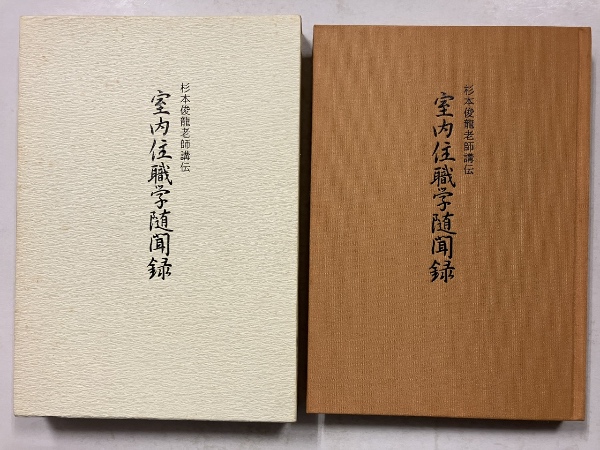 杉本俊龍老師講伝
室内住職学随聞録
杉本俊龍老師講伝
室内住職学随聞録